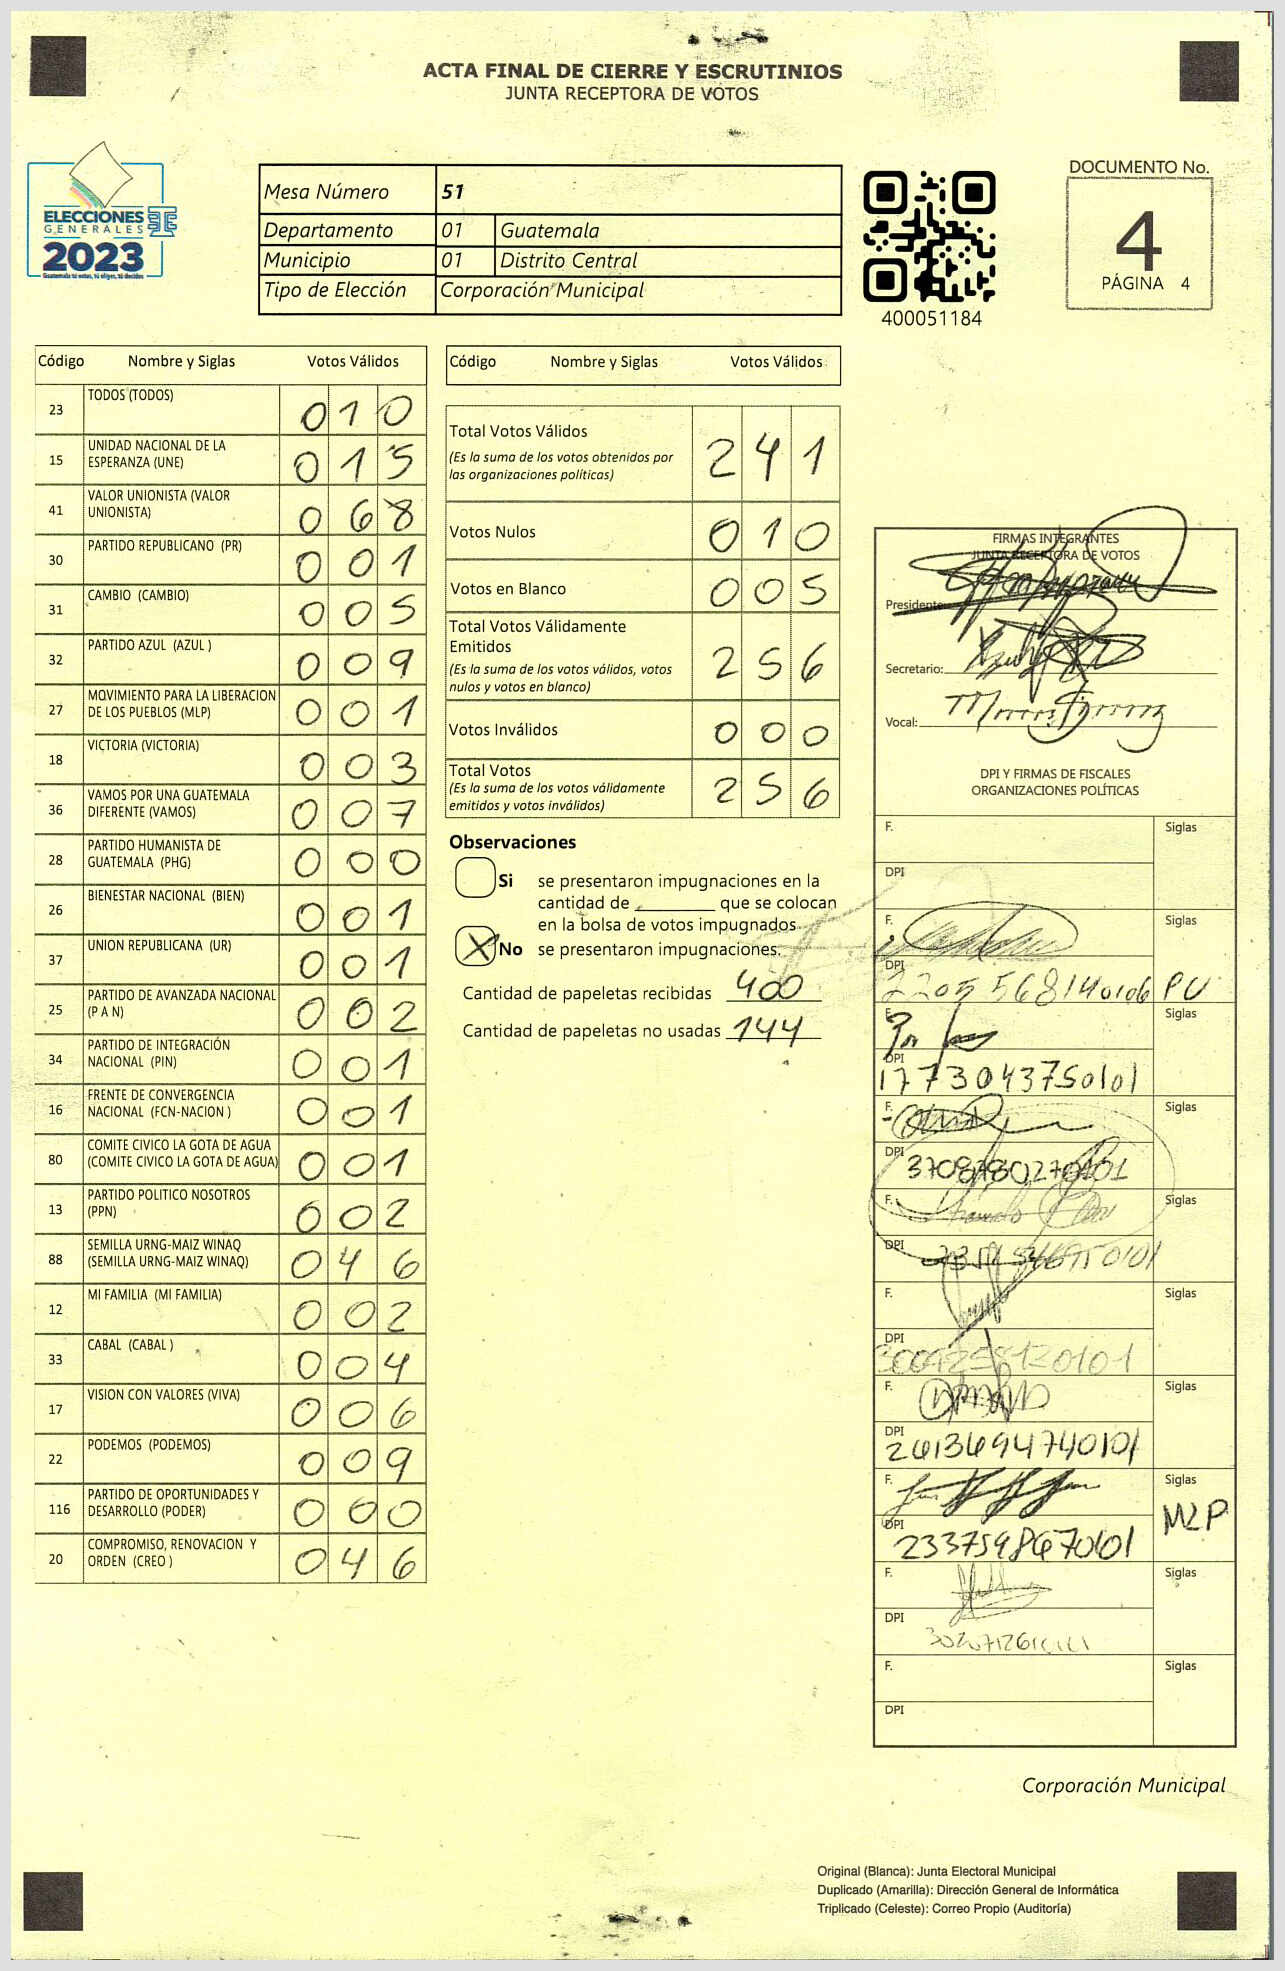 ACTA FINAL DE CIERRE Y ESCRUTINIOS
JUNTA RECEPTORA DE VOTOS
ELECCIONES
GENERALES
2023
Guatemala tú votas, tú eliges, tú decides
Mesa Número 51
Departamento 01 Guatemala
Municipio 01 Distrito Central
Tipo de Elección Corporación Municipal
400051184
DOCUMENTO No.
4
PÁGINA 4
Código Nombre y Siglas Votos Válidos
23 TODOS (TODOS) 0 1 0
15 UNIDAD NACIONAL DE LA ESPERANZA (UNE) 0 1 5
41 VALOR UNIONISTA (VALOR UNIONISTA) 0 6 8
30 PARTIDO REPUBLICANO (PR) 0 0 1
31 CAMBIO (CAMBIO) 0 0 5
32 PARTIDO AZUL (AZUL ) 0 0 9
27 MOVIMIENTO PARA LA LIBERACION DE LOS PUEBLOS (MLP) 0 0 1
18 VICTORIA (VICTORIA) 0 0 3
36 VAMOS POR UNA GUATEMALA DIFERENTE (VAMOS) 0 0 7
28 PARTIDO HUMANISTA DE GUATEMALA (PHG) 0 0 0
26 BIENESTAR NACIONAL (BIEN) 0 0 1
37 UNION REPUBLICANA (UR) 0 0 1
25 PARTIDO DE AVANZADA NACIONAL (P A N) 0 0 2
34 PARTIDO DE INTEGRACIÓN NACIONAL (PIN) 0 0 1
16 FRENTE DE CONVERGENCIA NACIONAL (FCN-NACION ) 0 0 1
80 COMITE CIVICO LA GOTA DE AGUA (COMITE CIVICO LA GOTA DE AGUA) 0 0 1
13 PARTIDO POLITICO NOSOTROS (PPN) 0 0 2
88 SEMILLA URNG-MAIZ WINAQ (SEMILLA URNG-MAIZ WINAQ) 0 4 6
12 MI FAMILIA (MI FAMILIA) 0 0 2
33 CABAL (CABAL ) 0 0 4
17 VISION CON VALORES (VIVA) 0 0 6
22 PODEMOS (PODEMOS) 0 0 9
116 PARTIDO DE OPORTUNIDADES Y DESARROLLO (PODER) 0 0 0
20 COMPROMISO, RENOVACION Y ORDEN (CREO ) 0 4 6
Código Nombre y Siglas Votos Válidos
Total Votos Válidos 2 4 1
(Es la suma de los votos obtenidos por
las organizaciones políticas)
Votos Nulos 0 1 0
Votos en Blanco 0 0 5
Total Votos Válidamente
Emitidos 2 5 6
(Es la suma de los votos válidos, votos
nulos y votos en blanco)
Votos Inválidos 0 0 0
Total Votos 2 5 6
(Es la suma de los votos válidamente
emitidos y votos inválidos)
Observaciones
Si se presentaron impugnaciones en la
cantidad de ________ que se colocan
en la bolsa de votos impugnados.
X No se presentaron impugnaciones.
Cantidad de papeletas recibidas 400
Cantidad de papeletas no usadas 144
FIRMAS INTEGRANTES
JUNTA RECEPTORA DE VOTOS
Presidente:
Secretario:
Vocal:
DPI Y FIRMAS DE FISCALES
ORGANIZACIONES POLÍTICAS
F. Siglas
DPI
F. Siglas
DPI 2205 56814 0106 PU
F. Siglas
DPI 1773043750101
F. Siglas
DPI
F. Siglas
DPI
F. Siglas
DPI
F. Siglas
DPI 2613694740101
F. Siglas
DPI 2337598670101 MLP
F. Siglas
DPI
F. Siglas
DPI
Corporación Municipal
Original (Blanca): Junta Electoral Municipal
Duplicado (Amarilla): Dirección General de Informática
Triplicado (Celeste): Correo Propio (Auditoría)